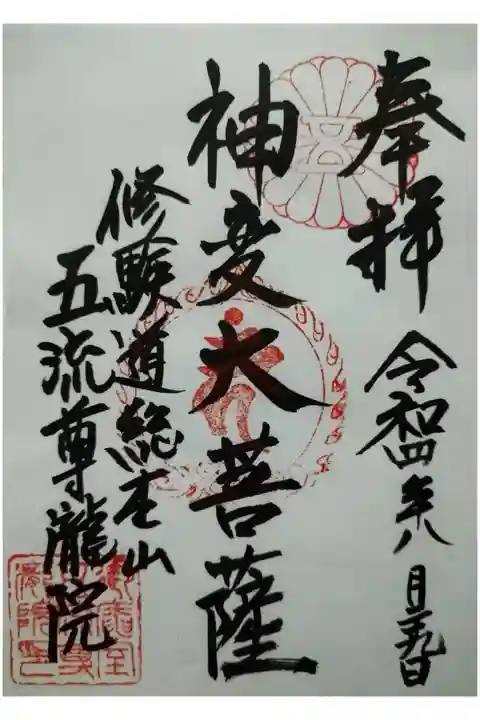 奉拝
令和四年八月二九日
神変大菩薩
修験道総本山
五流尊瀧院